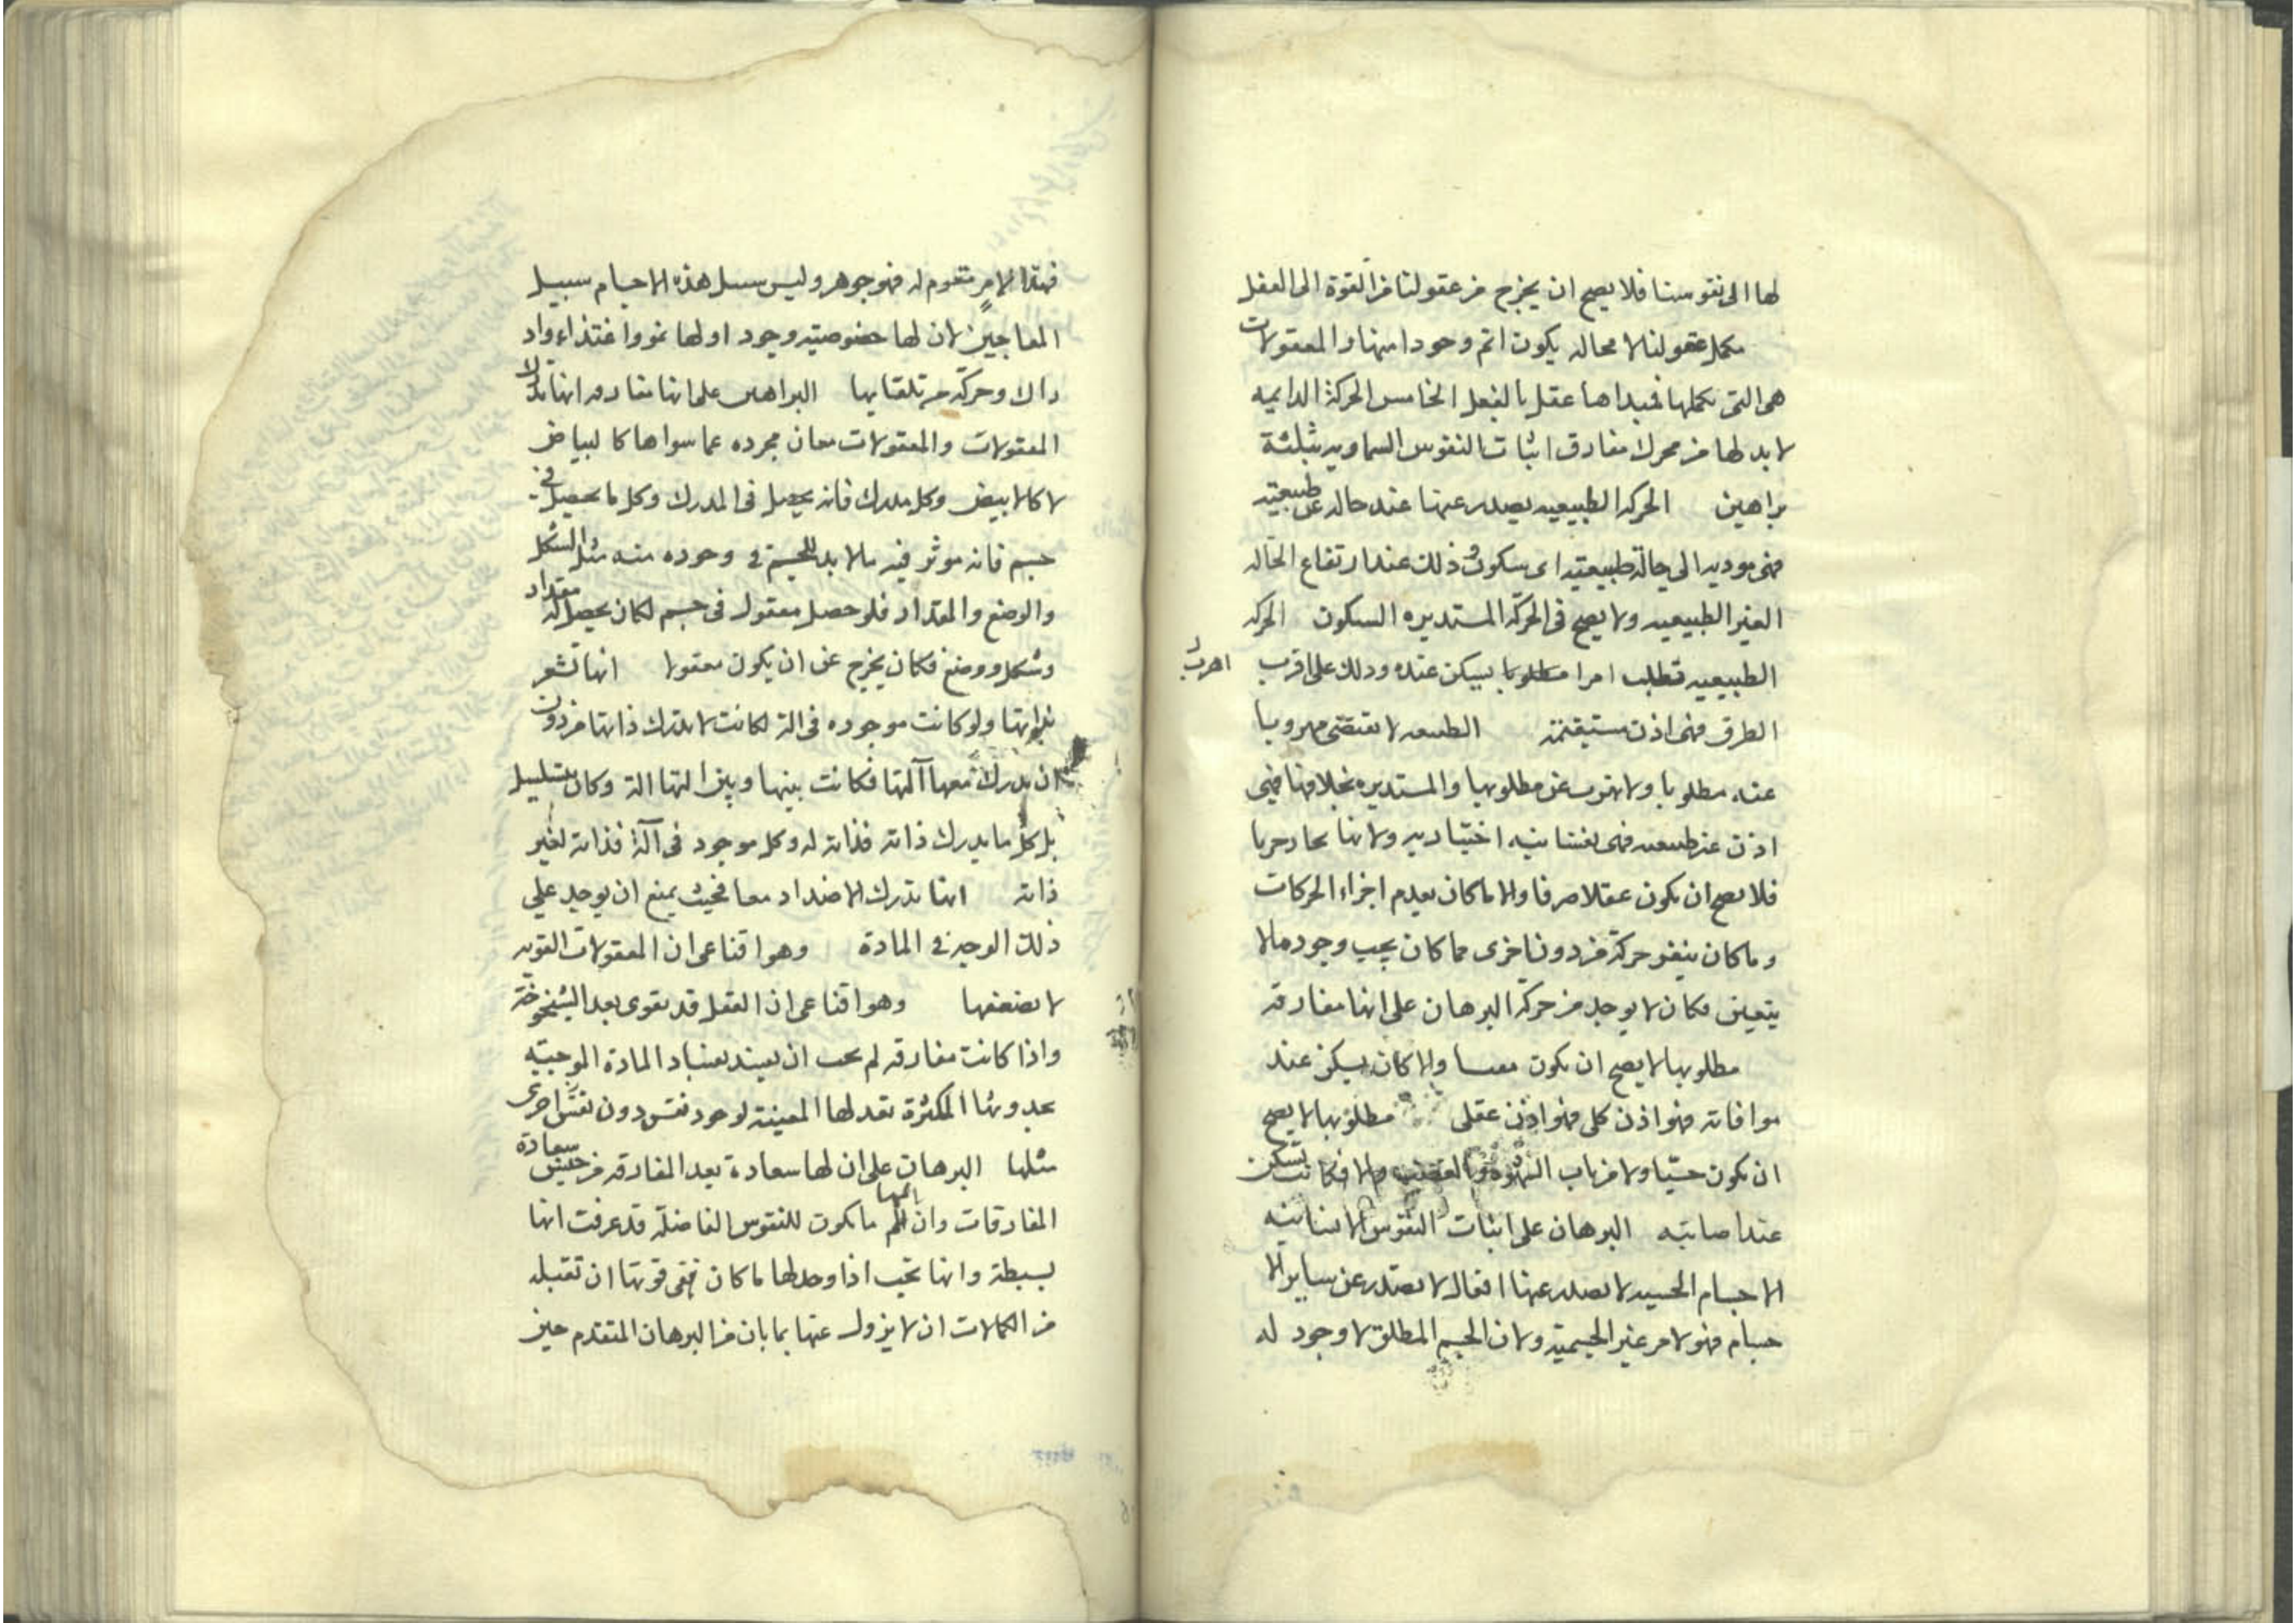 لها الى نفوسنا فلا يصح ان يخرج من عقولنا من القوة الى الفعل
مكمل عقولنا لا محاله يكون اتم وجودا منها والمعقولات
هى التى تكملها فمبداها عقل بالفعل الخامس الحركة الدايميه
لا بد لها من محرك مفارق اثبات النفوس السماويه بثلثة
براهين الحركه الطبيعيه يصدر عنها عند حاله غير طبيعيته
فهى موديه الى حالة طبيعيته اى سكون وذلك عند ارتفاع الحاله
الغير الطبيعيه ولا يصح فى الحركه المستديره السكون الحركه
الطبيعيه تطلب امرا مطلوبا يسكن عنده وذلك على اقرب
الطرق فهى اذن مستقيمة الطبيعه لا تقتضى مهروبا
عنه مطلوبا ولا تهرب عن مطلوبها والمستديره بخلافها فهى
اذن غير طبيعيه فهى نفسانيه اختياريه ولانها
فلا يصح ان يكون عقلا صرفا والا ما كان يعدم اجزاء الحركات
وما كان يتغير حركة من دون اخرى مما كان يجب وجوده مالا
يتعين فكان لا يوجد من حركة البرهان على انها مفارقه
مطلوبها لا يصح ان يكون معينا والا كان يسكن عند
موافاته فهو اذن كلى فهو اذن عقلى مطلوبها لا يصح
ان يكون حسيا ولا من باب الشهوه والغضب والا فكانت تسكن
عند اصابتيه البرهان على اثبات النفوس الانسانيه
الاجسام الحسيه لا يصدر عنها افعال لا يصدر عن ساير الا
جسام فهو لامر غير الجسمية ولان الجسم المطلق لا وجود له
فهذا الامر مقوم له فهو جوهر وليس سبيل هذه الاجسام سبيل
المعاجين لان لها خصوصيته وجود اولها نمو واغتذاء واد
راك وحركه من تلقايها البراهين على انها مفارقه انها تدرك
المعقولات والمعقولات معان مجرده عما سواها كالبياض
لا كالابيض وكل مدرك فانه يحصل فى المدرك وكل ما يحصل فى
جسم فانه موثر فيه مالا بد للجسم فى وجوده منه مثل الشكل
والوضع والمقدار فلو حصل معقول فى جسم لكان يحصل له مقدار
وشكل ووضع فكان يخرج عن ان يكون معقولا انها تشعر
بذواتها ولو كانت موجوده فى الة لكانت لا تدرك ذاتها من دون
ان يدرك معها آلتها فكانت بينها وبين التها الة وكان يتسلسل
بل كل ما يدرك ذاته فذاته له وكل موجود فى آلة فذاته لغير
ذاته انها تدرك الاضداد معا بحيث يمنع ان يوجد على
ذلك الوجه فى المادة وهو اقناعى ان المعقولات القويه
لا تضعفها وهو اقناعى ان العقل قد يقوى بعد الشيخوخة
واذا كانت مفارقه لم يجب ان يفسد بفساد المادة الموجبته
بحدوثها المكثرة بقدلها المعينة لوجود نفس دون نفس اخرى
مثلها البرهان على ان لها سعادة بعد المفارقه من جنس سعادة
المفارقات وان ما يكون للنفوس الفاضلة قد عرفت انها
بسيطة وانها يجب اذا وجد لها ما كان فى قوتها ان تقبله
من الكمالات ان لا يزول عنها بما بان من البرهان المتقدم حين